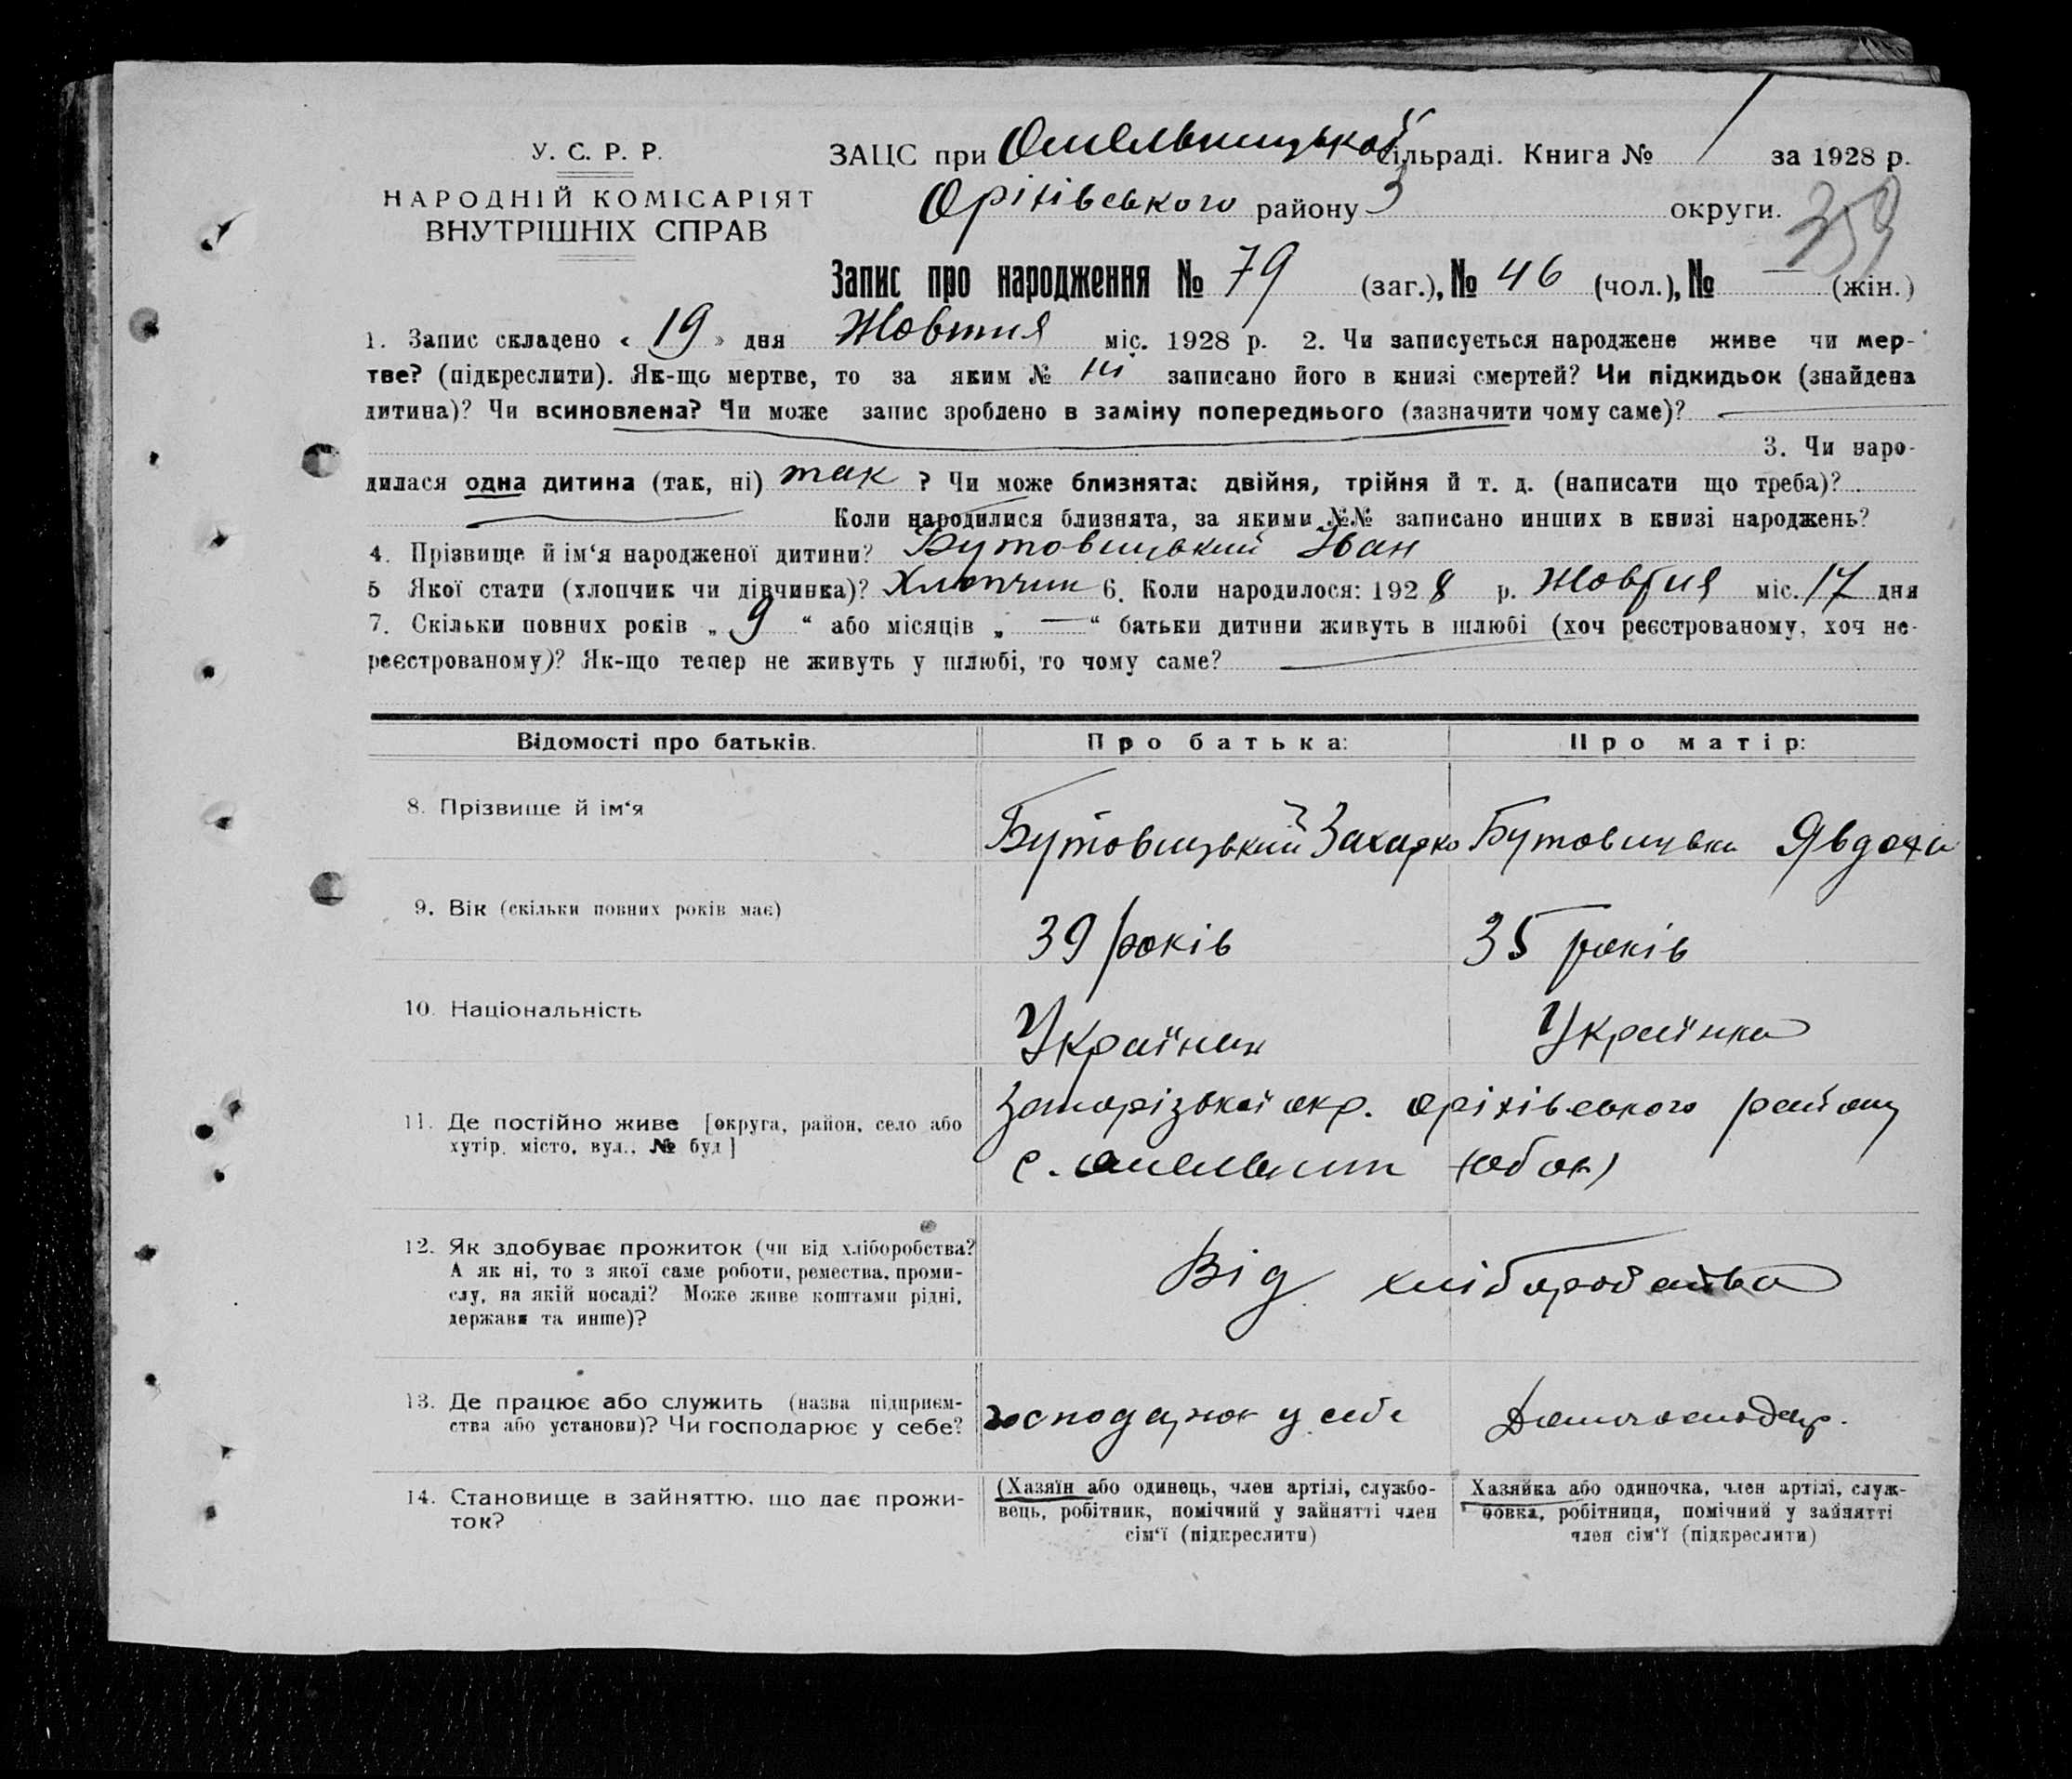 У. С. Р. Р.
НАРОДНІЙ КОМІСАРІЯТ
ВНУТРІШНІХ СПРАВ
ЗАЦС при Омельницької сільраді. Книга № 1 за 1928 р.
Оріхівського району З округи.
359
Запис про народження № 79 (заг.), № 46 (чол.), № — (жін.)
1. Запис складено « 19 » дня Жовтня міс. 1928 р. 2. Чи записується народжене живе чи мер-
тве? (підкреслити). Як-що мертве, то за яким № ні записано його в книзі смертей? Чи підкидьок (знайдена
дитина)? Чи всиновлена? Чи може запис зроблено в заміну попереднього (зазначити чому саме)? —
3. Чи наро-
дилася одна дитина (так, ні) так ? Чи може близнята: двійня, трійня й т. д. (написати що треба)?
— Коли народилися близнята, за якими №№ записано инших в книзі народжень?
4. Прізвище й ім‘я народженої дитини? Бутовицький Іван
5 Якої стати (хлопчик чи дівчинка)? Хлопчик 6. Коли народилося: 1928 р. Жовтня міс. 17 дня
7. Скільки повних років „ 9 “ або місяців „ — “ батьки дитини живуть в шлюбі (хоч реєстрованому, хоч не-
реєстрованому)? Як-що тепер не живуть у шлюбі, то чому саме? —
Відомості про батьків. Про батька: Про матір:
8. Прізвище й ім‘я Бутовицький Захарко Бутовицька Явдоха
9. Вік (скільки повних років має) 39 років 35 років
10. Національність Українец Українка
11. Де постійно живе [округа, район, село або
хутір, місто, вул., № буд]
Запорізької окр. оріхівського району
с. Омельник (обоє)
12. Як здобуває прожиток (чи від хліборобства?
А як ні, то з якої саме роботи, ремества, проми-
слу, на якій посаді? Може живе коштами рідні,
держави та инше)?
Від хліборобства
13. Де працює або служить (назва підприєм-
ства або установи)? Чи господарює у себе?
господарює у себе Домогосподар.
14. Становище в зайняттю, що дає прожи-
ток?
(Хазяїн або одинець, член артілі, службо-
вець, робітник, помічний у зайнятті член
сім‘ї (підкреслити)
Хазяйка або одиночка, член артілі, служ-
бовка, робітниця, помічний у зайнятті
член сім‘ї (підкреслити)